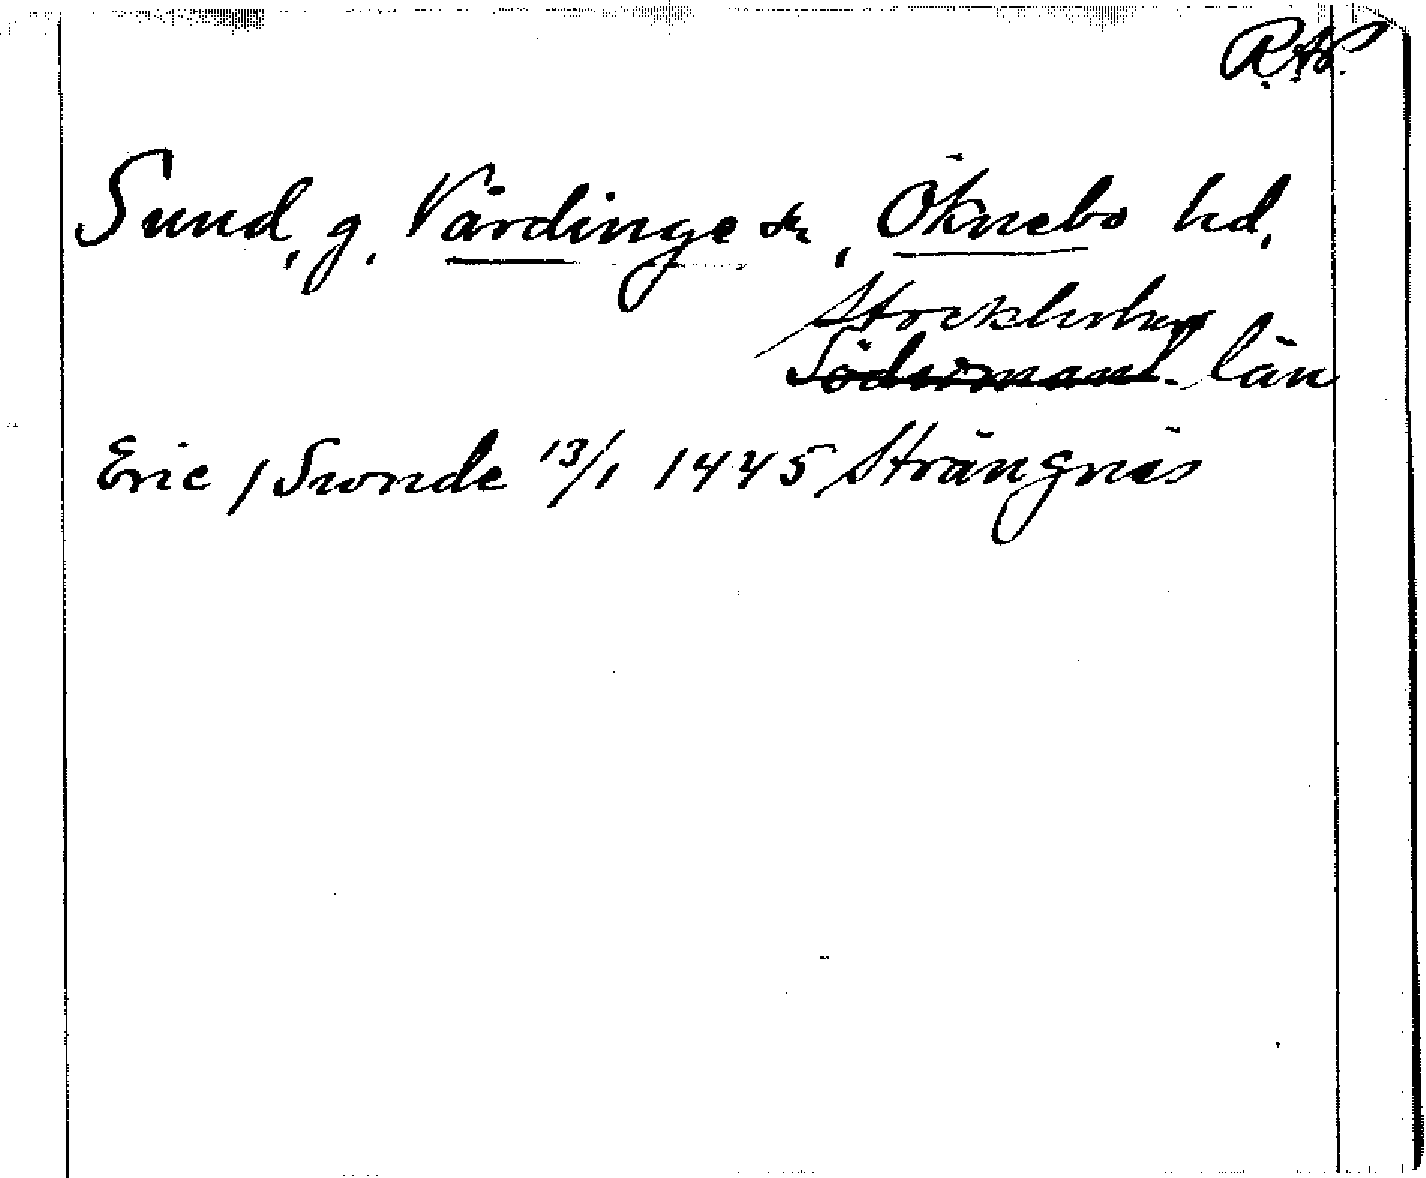 R.A.P.
Sund, g. Vårdinge sn, Öknebo hd,
Stockholms
Södermanl. län
Eric j Swnde 13/1 1445 Strängnäs